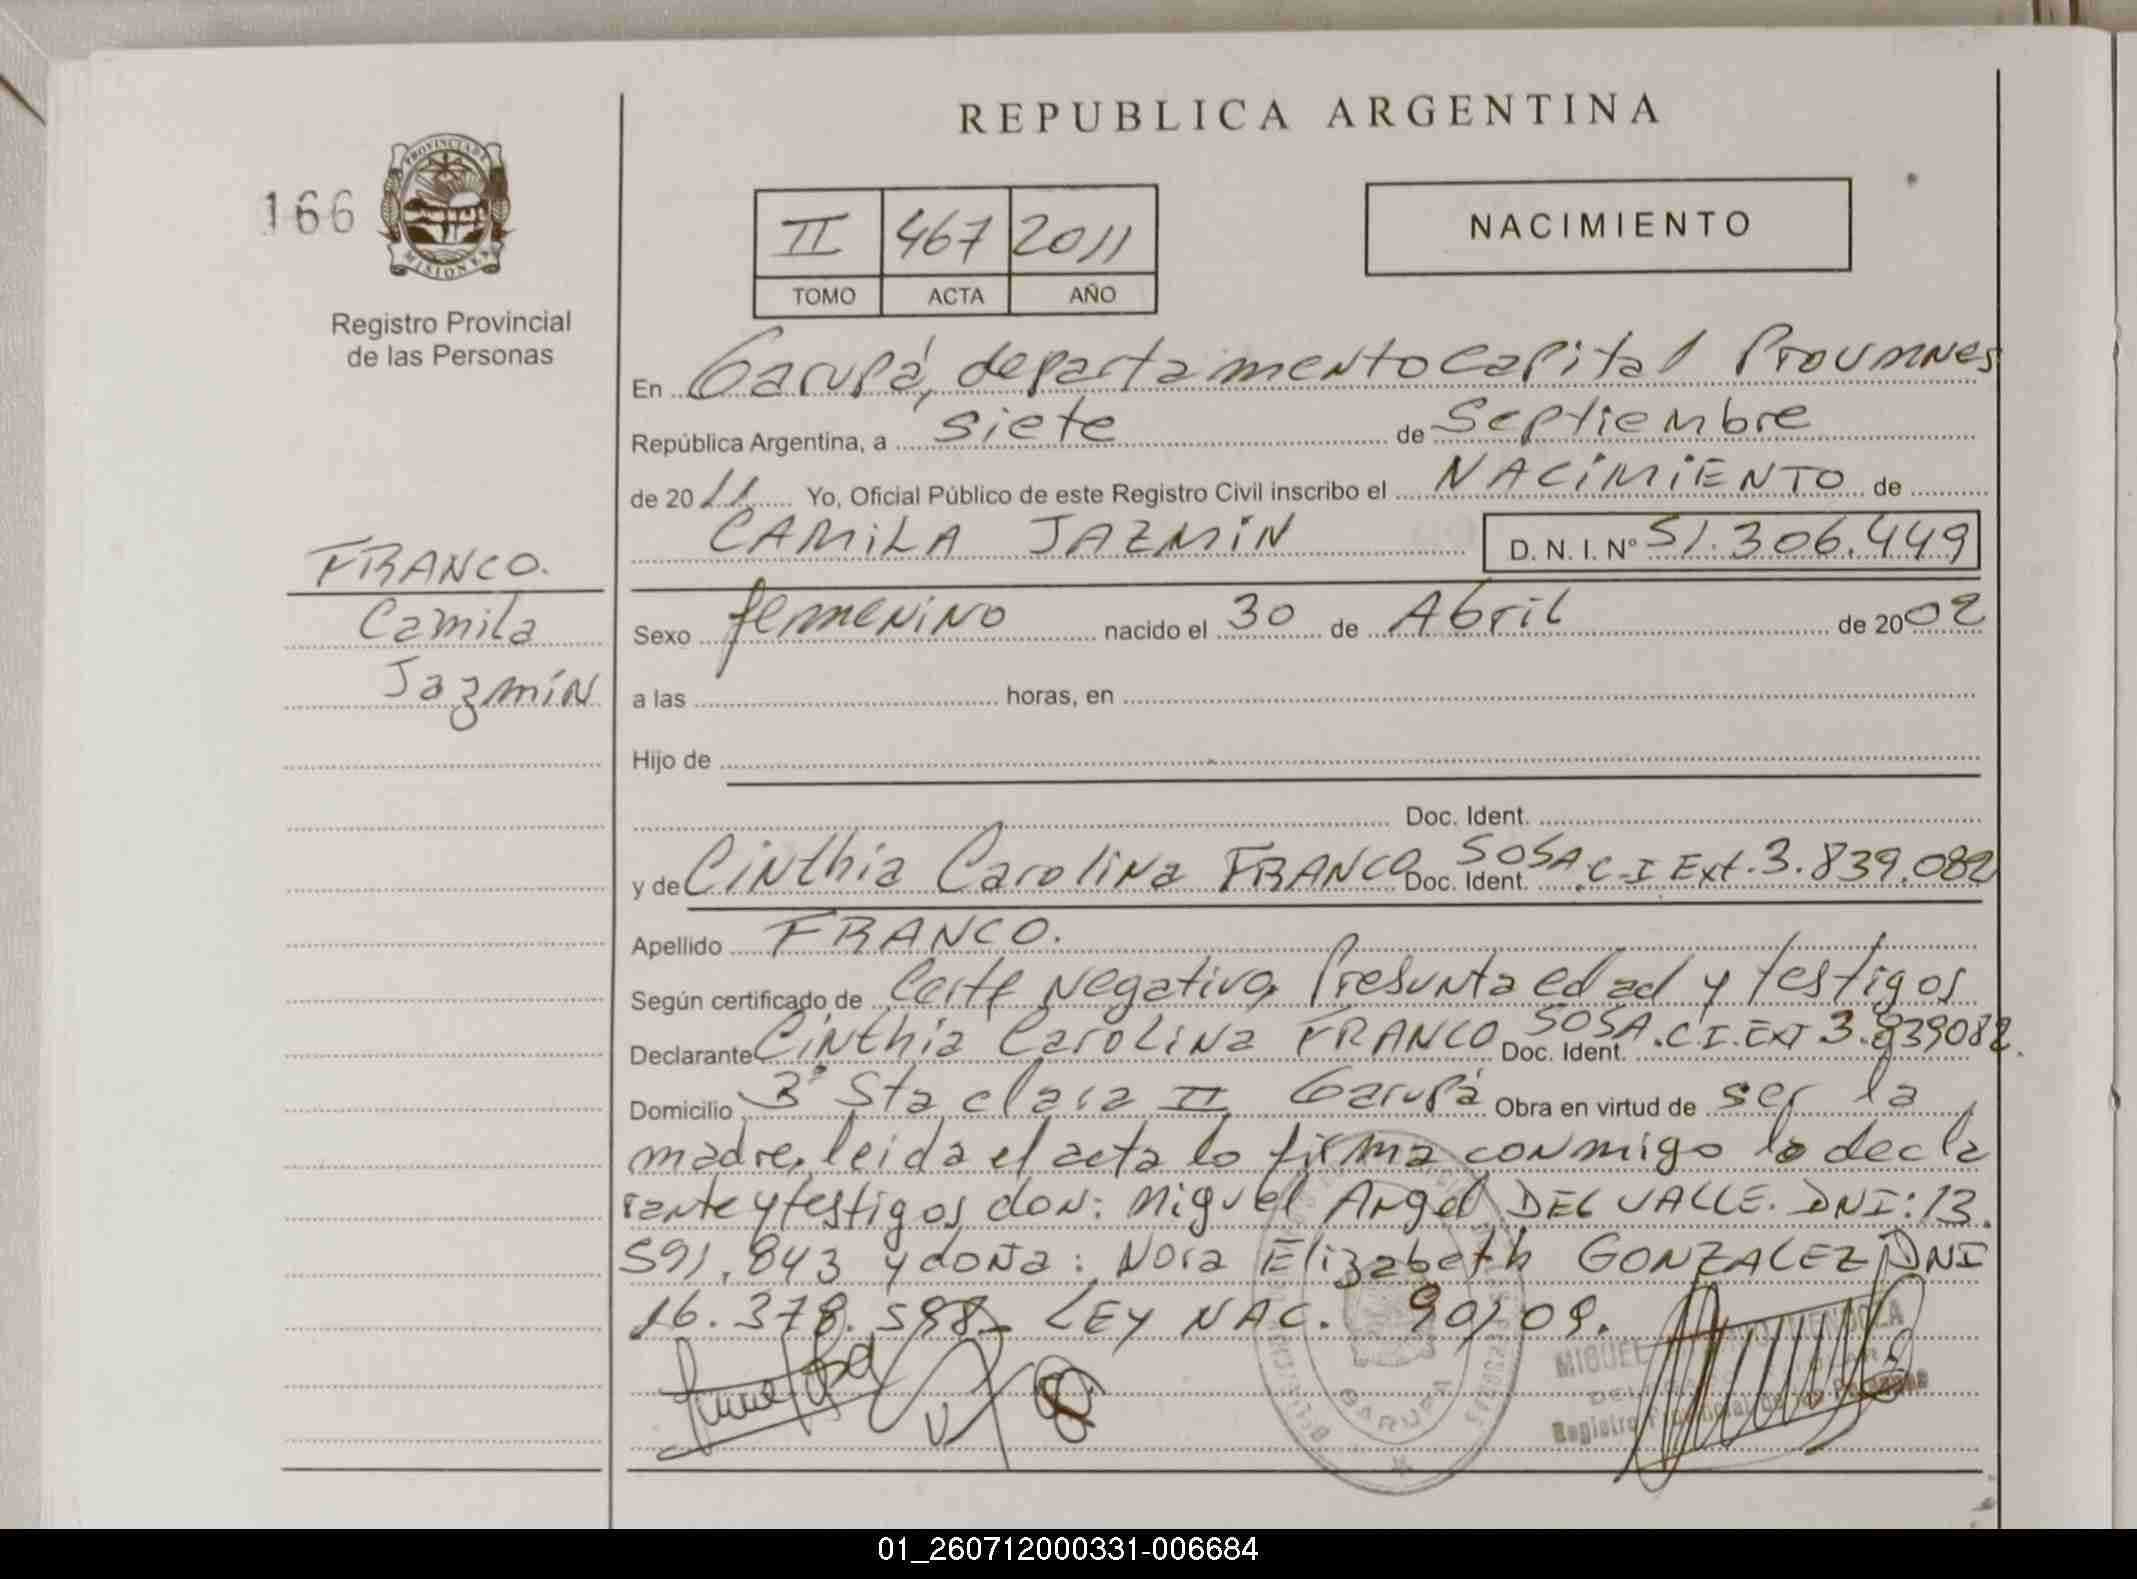 REPUBLICA ARGENTINA
166
PROVINCIA DE
MISIONES
Registro Provincial
de las Personas
II 467 2011
TOMO ACTA AÑO
NACIMIENTO
En Garupá, departamento Capital
República Argentina, a siete de Septiembre
de 2011 Yo, Oficial Público de este Registro Civil inscribo el NACIMIENTO de
CAMILA JAZMIN D. N. I. Nº 51.306.449
FRANCO.
Camila
Jazmín
Sexo femenino nacido el 30 de Abril de 2002
a las horas, en
Hijo de
Doc. Ident.
y de Cinthia Carolina FRANCO SOSA Doc. Ident. C.I Ext. 3.839.082
Apellido FRANCO.
Según certificado de Negativo, Presunta edad y testigos
Declarante Cinthia Carolina FRANCO SOSA Doc. Ident. C.I. EXT 3.839082.
Domicilio 3° Sta clara II Garupá Obra en virtud de ser la
madre. leida el acta lo firma conmigo la decla
rante y testigos don: Miguel Angel DEL VALLE. DNI: 13.
591.843 y doña: Nora Elizabeth GONZALEZ DNI
16.378.598- LEY NAC. 90/09.
GARUPA
MIGUEL MENDOZA
Registro Provincial de las Personas
01_260712000331-006684